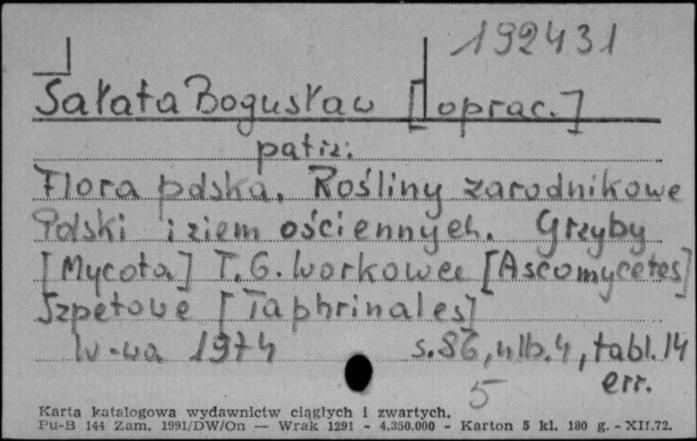 192431
Sałata Bogusław [oprac.]
patrz:
Flora polska. Rośliny zarodnikowe
Polski i ziem ościennych. Grzyby
[Mycota] T. 6. Workowce [Ascomycetes]
Szpetowe [Taphrinales]
W-wa 1974 s. 86, nlb. 4, tabl. 14
5 err.
Karta katalogowa wydawnictw ciągłych i zwartych.
Pu-B 144 Zam. 1991/DW/On — Wrak 1291 - 4.350.000 - Karton 5 kl. 180 g. - XII.72.